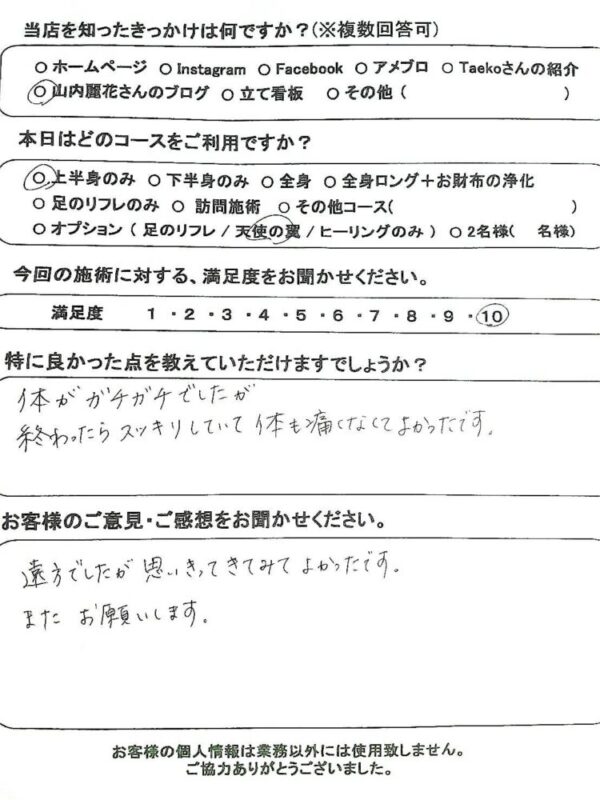 当店を知ったきっかけは何ですか？(※複数回答可)
○ ホームページ ○ Instagram ○ Facebook ○ アメブロ ○ Taekoさんの紹介
○ 山内麗花さんのブログ ○ 立て看板 ○ その他 ( )
本日はどのコースをご利用ですか？
○ 上半身のみ ○ 下半身のみ ○ 全身 ○ 全身ロング＋お財布の浄化
○ 足のリフレのみ ○ 訪問施術 ○ その他コース( )
○ オプション ( 足のリフレ / 天使の翼 / ヒーリングのみ ) ○ 2名様( 名様)
今回の施術に対する、満足度をお聞かせください。
満足度 1 ・ 2 ・ 3 ・ 4 ・ 5 ・ 6 ・ 7 ・ 8 ・ 9 ・ 10
特に良かった点を教えていただけますでしょうか？
体がガチガチでしたが
終わったらスッキリしていて体も痛くなくてよかったです。
お客様のご意見・ご感想をお聞かせください。
遠方でしたが思いきってきてみてよかったです。
また お願いします。
お客様の個人情報は業務以外には使用致しません。
ご協力ありがとうございました。